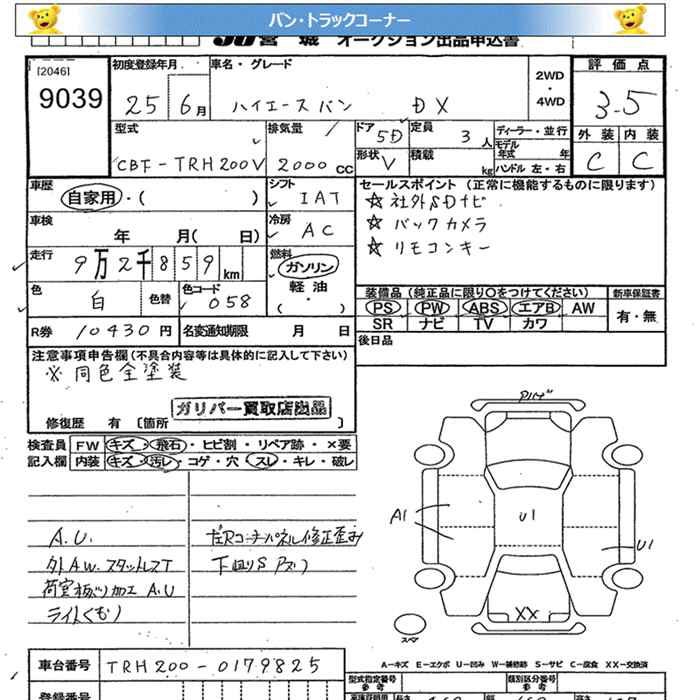 バン・トラックコーナー
オークション出品申込書
[2046]
9039
初度登録年月
25 6月
車名・グレード
ハイエースバン DX
2WD
・
4WD
評価点
3.5
外装 内装
C C
型式
CBF-TRH200V
排気量
2000cc
ドア
5D
定員
3人
形状
V
積載
kg
ディーラー・並行
モデル年式 年
ハンドル 左・右
車歴
自家用・( )
シフト
IAT
車検
年 月( 日)
冷房
AC
走行
9万2千859km
燃料
ガソリン
軽油
( ・ )
色
白
色替
色コード
058
R券 10430円
名変通知期限 月 日
セールスポイント (正常に機能するものに限ります)
☆ 社外SDナビ
☆ バックカメラ
☆ リモコンキー
装備品(純正品に限り○をつけてください)
PS PW ABS エアB AW
SR ナビ TV カワ
新車保証書
有・無
後日品
注意事項申告欄(不具合内容等は具体的に記入して下さい)
※ 同色全塗装
ガリバー買取店出品
修復歴 有 [箇所 ]
検査員
記入欄
FW キズ・飛石・ヒビ割・リペア跡・×要
内装 キズ・汚レ・コゲ・穴・スレ・キレ・破レ
A.U.
外AW.スタットレスT
荷室板バリ加工 A.U
ライトくもり
左Rコーナーパネル修正歪み
下廻りS
A1
U1
U1
XX
スペア
A－キズ E－エクボ U－凹み W－補修跡 S－サビ C－腐食 XX－交換済
車台番号 TRH200-0179825
型式指定番号
参考
類別区分番号
参考
登録番号
長さ
幅
高さ